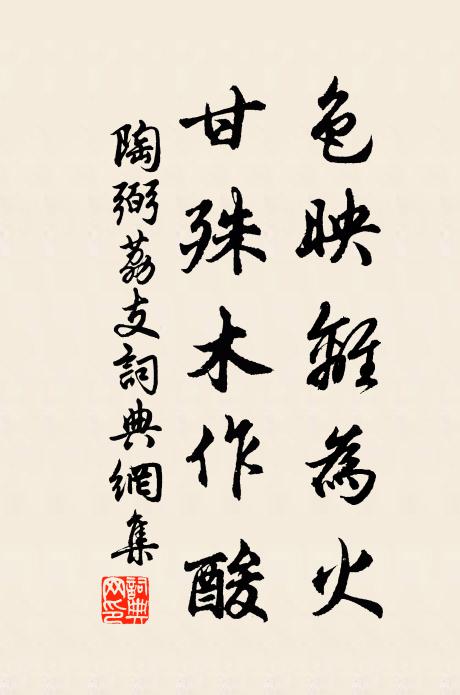 色映離為火
甘殊木作酸
陶弼荔支詞典網集
詞典网印